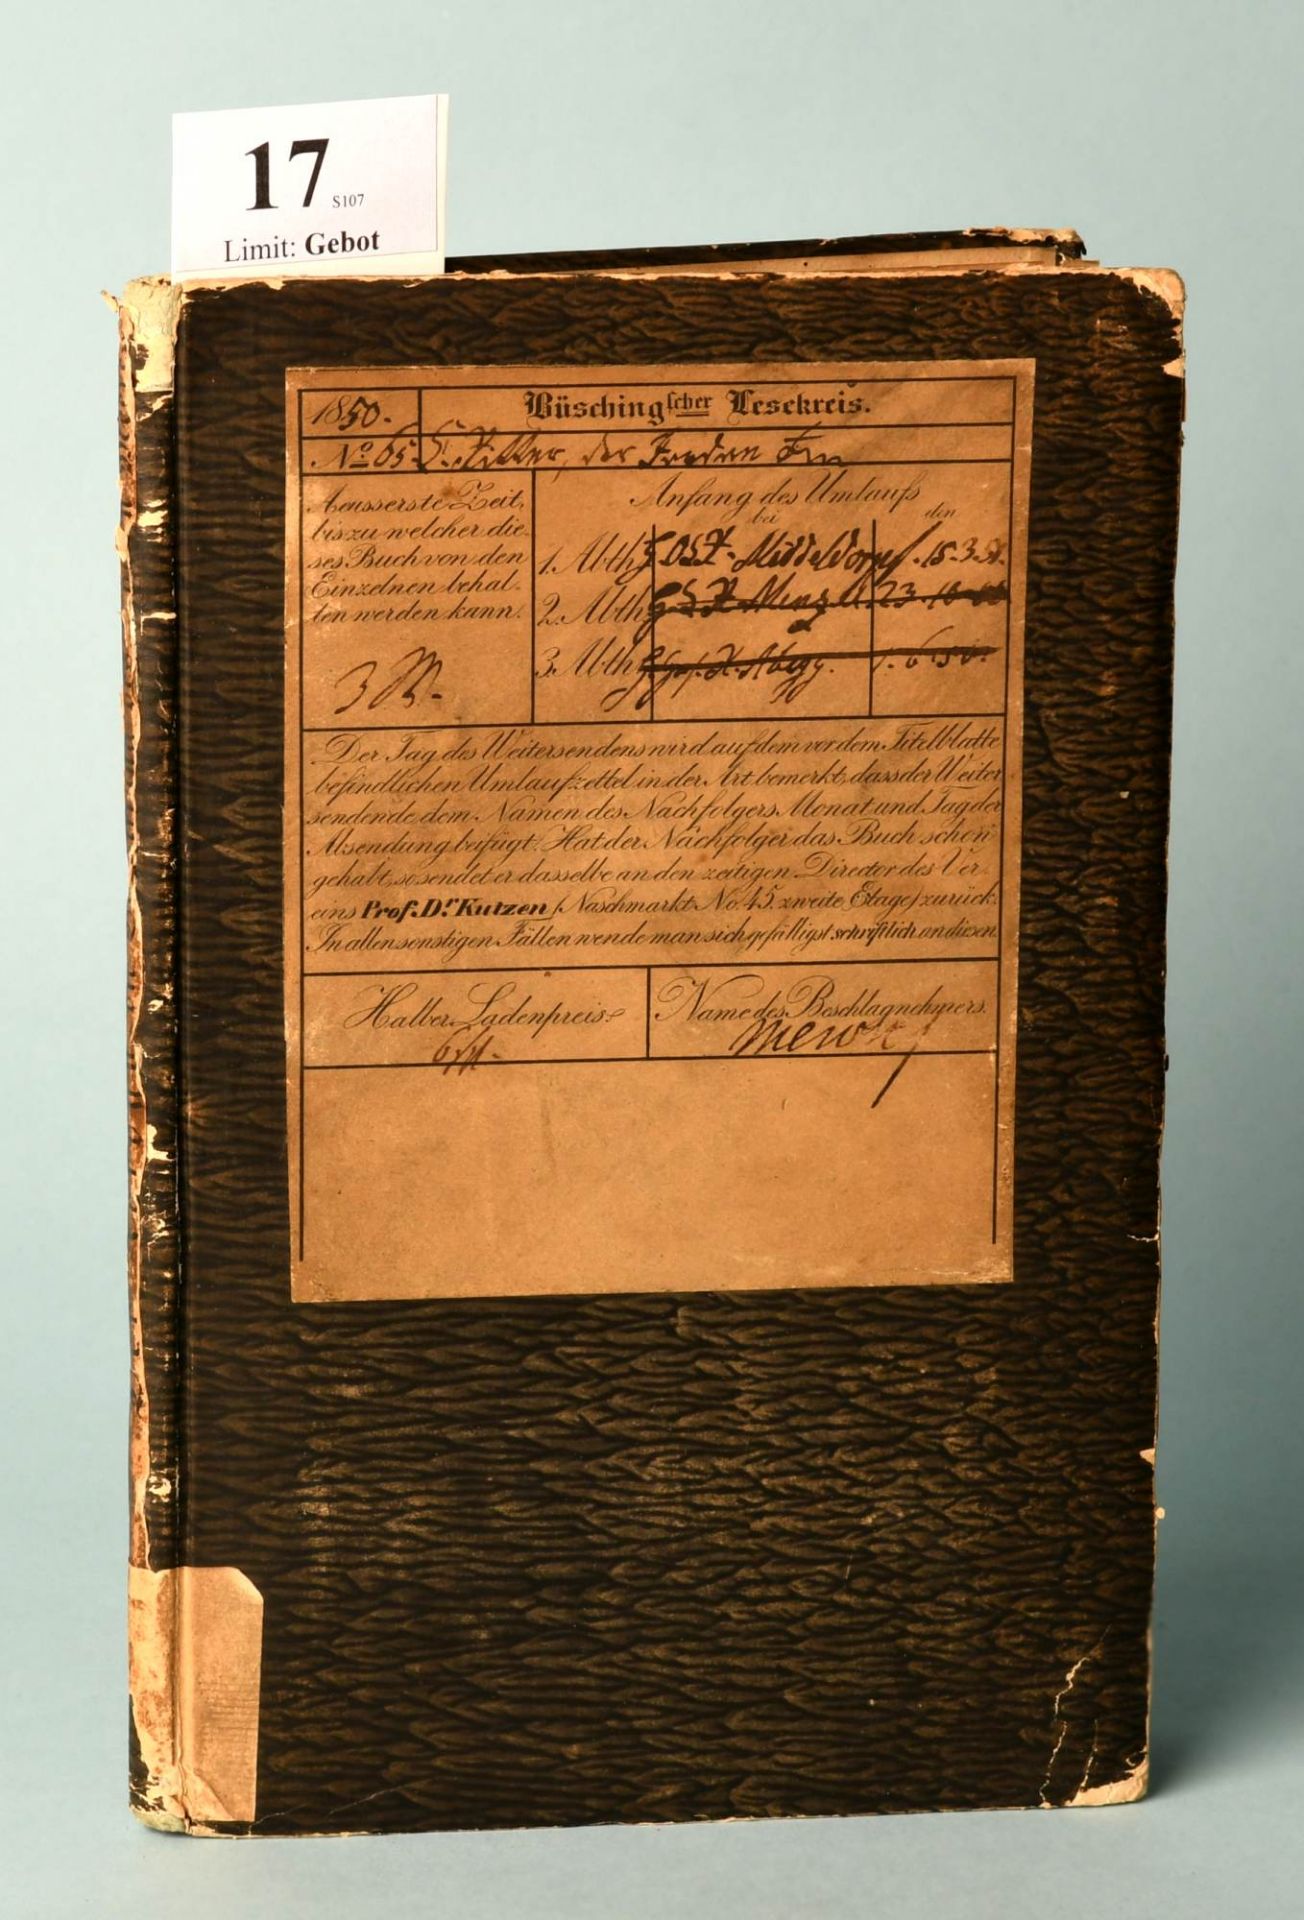 17 S107
Limit: Gebot
1850. Büsching scher Lesekreis.
No 65. C. Ritter, der Jordan
Aeusserste Zeit,
bis zu welcher die-
ses Buch von den
Einzelnen behal-
ten werden kann.
3 W.
Anfang des Umlaufs
bei den
1. Abth. Middeldorpf. 15. 3. 51.
2. Abth. Menzel. 23. 10
3. Abth. Abegg. 1. 6. 50.
Der Tag des Weitersendens wird auf dem vor dem Titelblatte
befindlichen Umlaufzettel in der Art bemerkt, dass der Weiter
sendende dem Namen des Nachfolgers Monat und Tag der
Absendung beifügt. Hat der Nachfolger das Buch schon
gehabt, so sendet er dasselbe an den zeitigen Director des Ver
eins Prof. Dr. Kutzen (Naschmarkt No. 45. zweite Etage) zurück.
In allen sonstigen Fällen wende man sich gefälligst schriftlich an diesen.
Halber Ladenpreis:
Name des Beschlagnehmers.